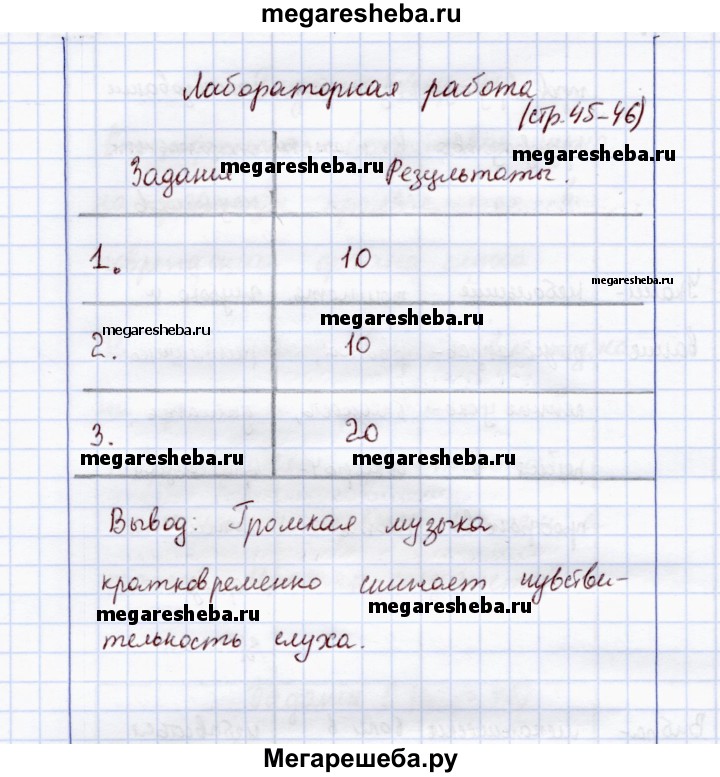 megaresheba.ru
Лабораторная работа
(стр. 45-46)
megaresheba.ru
Задания megaresheba.ru Результаты.
1. 10
megaresheba.ru
megaresheba.ru megaresheba.ru
2. 10
3. 20
megaresheba.ru megaresheba.ru
Вывод: Громкая музыка
кратковременно снижает чувстви-
megaresheba.ru megaresheba.ru
тельность слуха.
Мегарешеба.ру